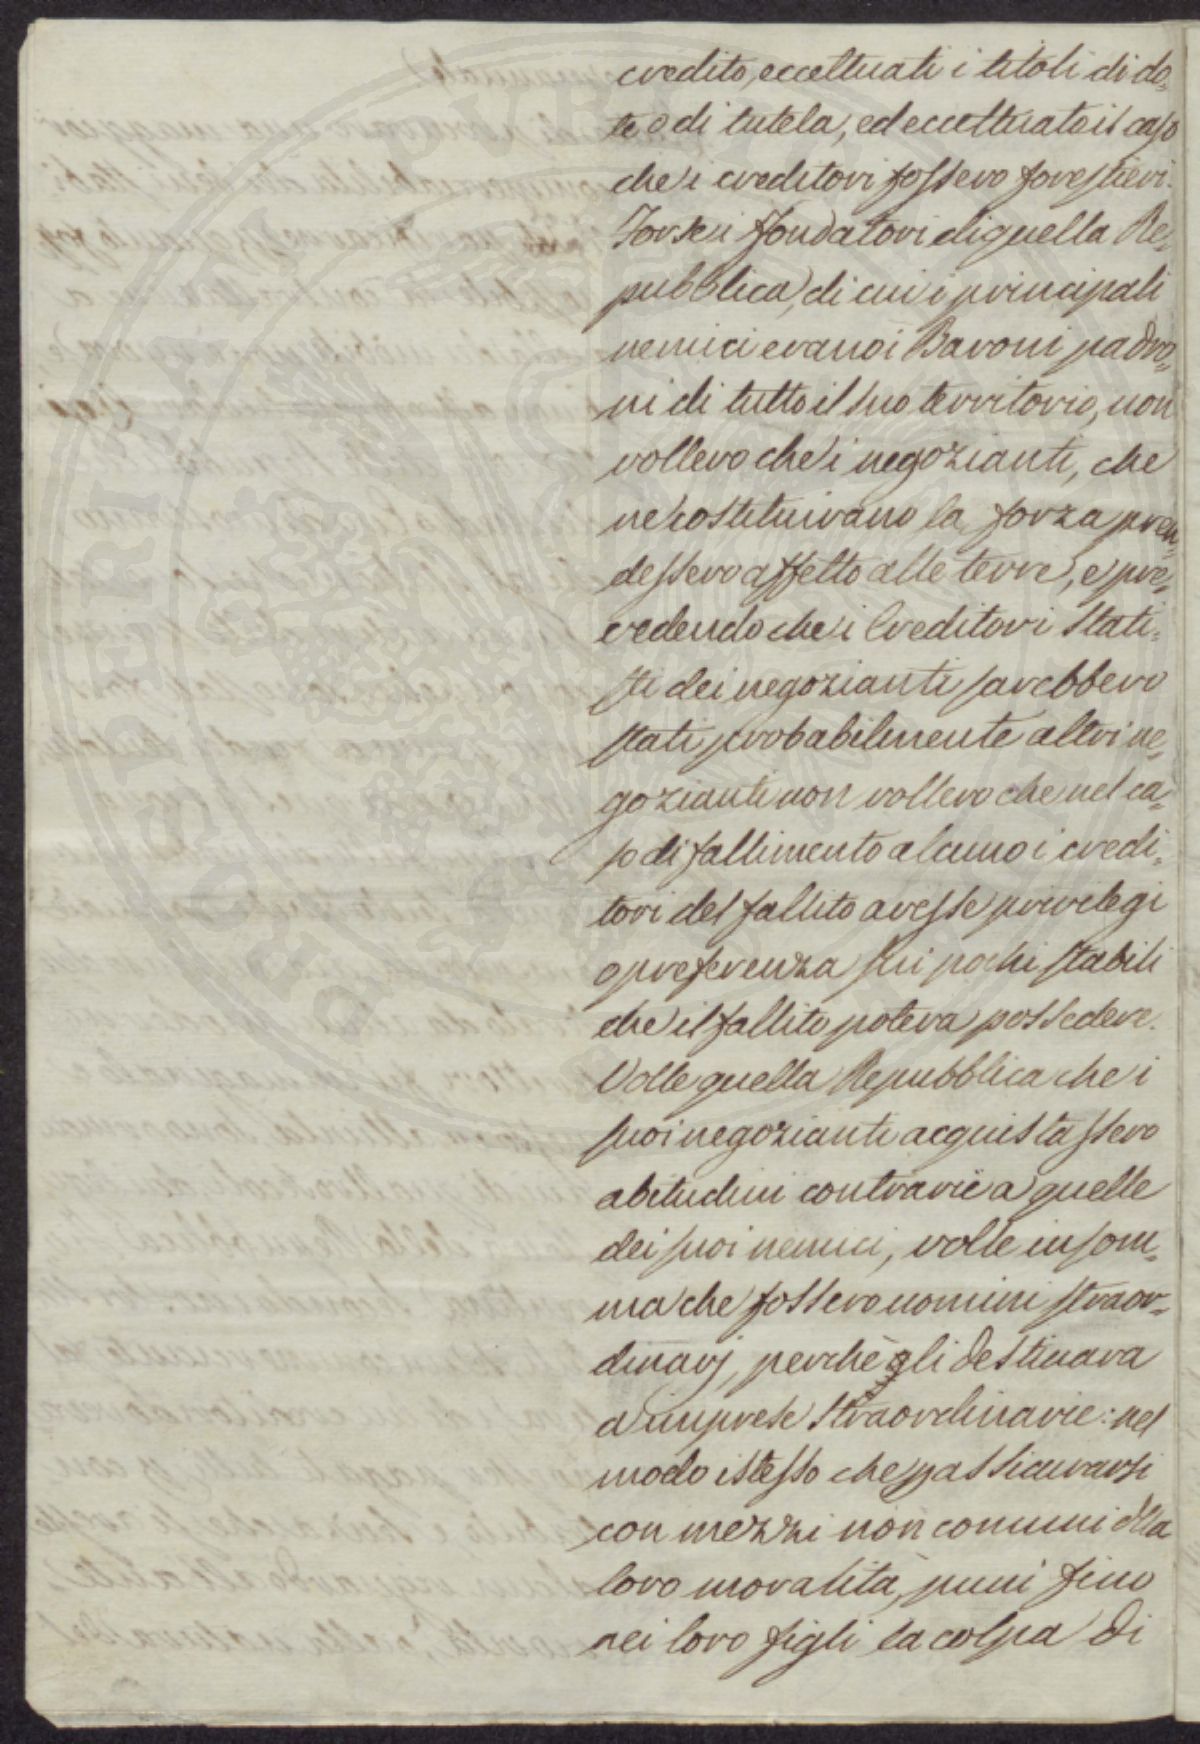 credito, eccettuati i titoli di do-
te o di tutela, ed eccettuato il caso
che i creditori fossero forestieri.
Forse i fondatori di quella Re-
pubblica, di cui i principali
nemici erano i Baroni padro-
ni di tutto il suo territorio, non
vollero che i negozianti, che
ne costituivano la forza pren-
dessero affetto alle terre, e pre-
vedendo che i Creditori Stati-
sti dei negozianti sarebbero
stati probabilmente altri ne-
gozianti non vollero che nel ca-
so di fallimento alcuno i credi-
tori del fallito avesse privilegi
o preferenza sui pochi stabili
che il fallito poteva possedere.
Volle quella Repubblica che i
suoi negozianti acquistassero
abitudini contrarie a quelle
dei suoi nemici, volle in som-
ma che fossero uomini straor-
dinarj, perchè gli destinava
a imprese straordinarie: nel
modo istesso che p assicurarsi
con mezzi non comuni della
loro moralità, punì fino
nei loro figli la colpa di